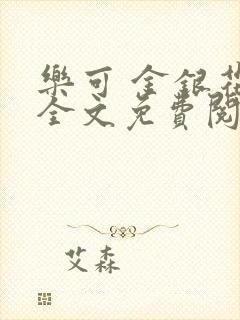 樂可 金銀花
全文免費閱
艾森